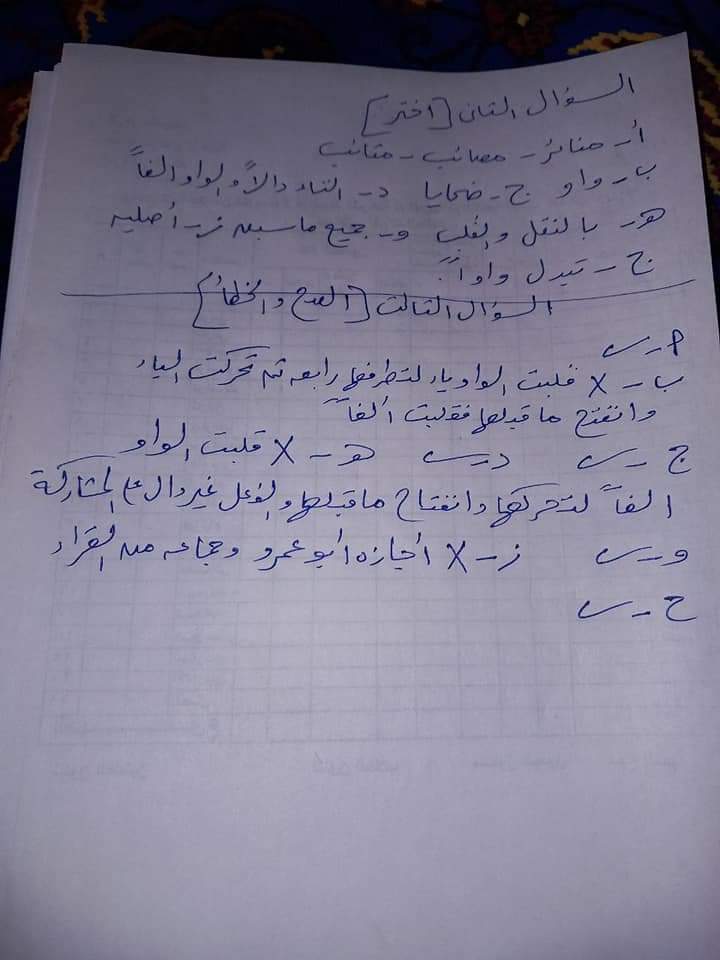 السؤال الثانى [اختر]
أ- منائر - مصائب - متائب
ب- واو ج- ضحايا د- التاء دالاً والواو الفاً
هـ- بالنقل والقلب و- جميع ما سبق ز- أصليه
ح - تبدل واواً.
السؤال الثالث [الصح والخطأ]
أ- س
ب- X قلبت الواو ياء لتطرفها رابعه ثم تحركت الياء
وانفتح ما قبلها فقلبت ألفاً
ج - س د- س هـ - X قلبت الواو
الفاً لتحركها وانفتاح ما قبلها والفعل غير دال على المشاركة
و- س ز- X أجازه أبو عمرو وجماعه من القراء
ح - س